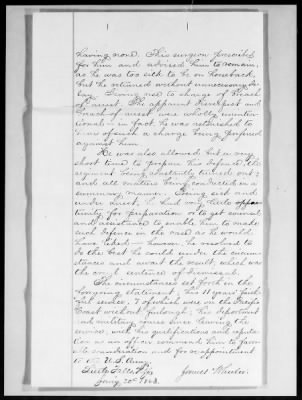 having none. This surgeon prescribed
for him and advised him to remain,
as he was too sick to be on horseback,
but he returned without unnecessary de-
lay. Being
of arrest. The apparent
breach of arrest were wholly uninten-
tional - in fact he was astonished to
hear of such a charge being preferred
against him.
He was also allowed but a very
short time to prepare his defence, the
regiment being constantly turned out;
and all matters being conducted in a
summary manner. Being sick and
under arrest, he had very little oppor-
tunity for preparation or to get counsel
and assistance to enable him to make
such defence in the case as he would
have liked - however, he resolved to
do the best he could under the circum-
stances and await the result, which was
the cruel sentence of dismissal.
The circumstances set forth in the
foregoing statement, his 11 years faith-
ful service, 7 of which were on the Pacific
Coast without furlough; his deportment
and military course since leaving the
service, with his qualifications and reputa-
tion as an officer commend him to favor-
able consideration and for re-appointment
in the U.S. Army.
James Wheeler.